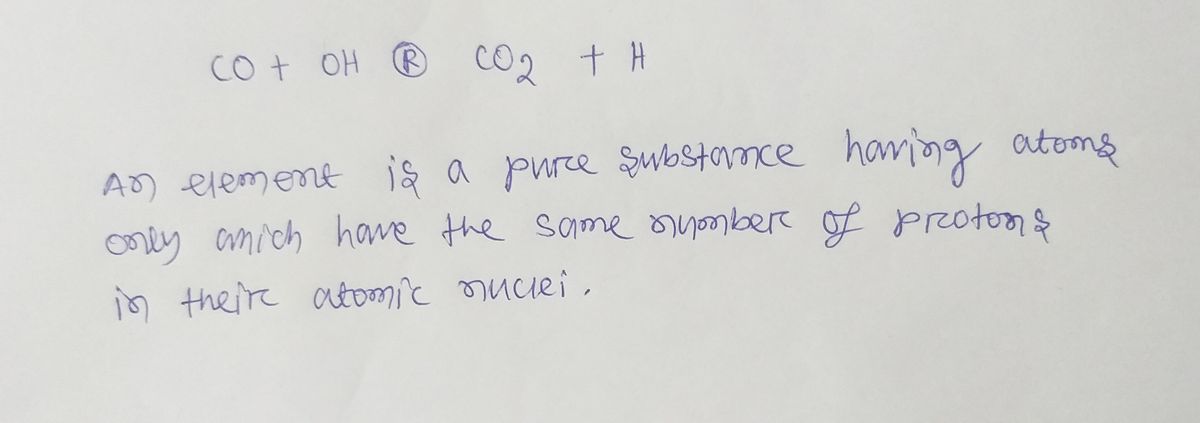 CO + OH ® CO2 + H
An element is a pure substance having atoms
only which have the same number of protons
in their atomic nuclei.